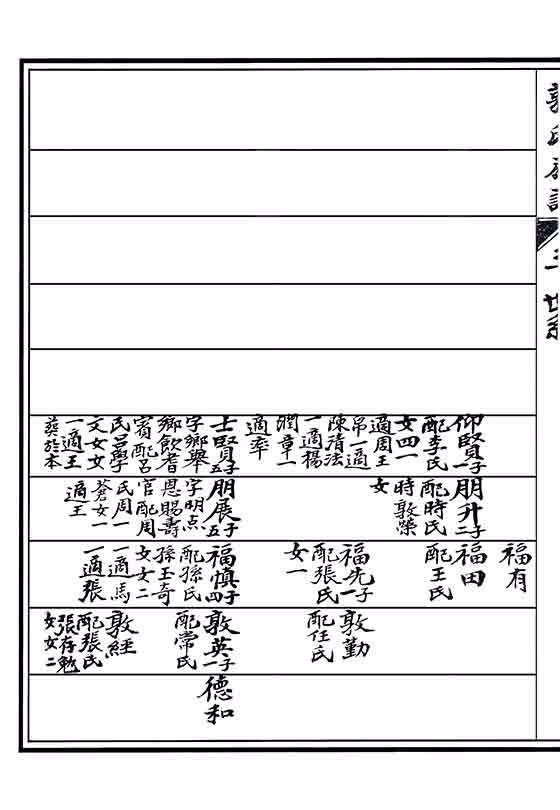 郭氏族譜
世系
仰賢子一
配李氏
女四一
適周王
帛一適
陳清法
一適楊
潤章一
適率
士賢子五
字鄉舉
鄉飲耆
賓配呂
氏呂學
文女文
一適王
葬於本
朋升子二
配時氏
時敦榮
女
朋展子五
字明点
恩賜壽
官配周
氏周一
蒼女一
適王
福有
福田
配王氏
福先子一
配張氏
女一
福慎子四
配孫氏
孫玉奇
女女二
一適馬
一適張
敦勤
配任氏
敦英子一
配常氏
敦經
配張氏
張存勉
女女二
德和